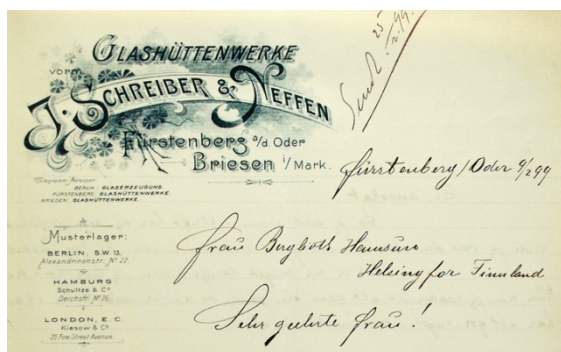 GLASHÜTTENWERKE
VORM.
J. SCHREIBER & NEFFEN
Fürstenberg a/d. Oder
Briesen i/Mark.
25/2.99.
Telegramm-Adressen
BERLIN: GLASERZEUGUNG.
FÜRSTENBERG: GLASHÜTTENWERKE.
BRIESEN: GLASHÜTTENWERKE.
Fürstenberg/Oder 9/2 99
Musterlager:
BERLIN, S.W. 13.
Alexandrinenstr. № 22.
HAMBURG
Schultze & Co
Deichstr. № 26.
LONDON, E.C.
Kiesow & Co
25 Fore Street Avenue.
Frau Bergliot Hamsun
Helsingfors Finnland
Sehr geehrte Frau!